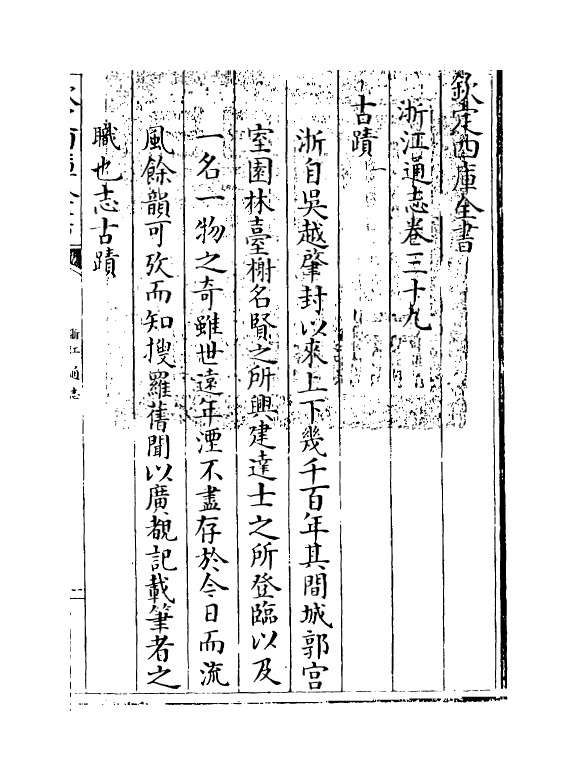 欽定四庫全書
浙江通志卷三十九
古蹟
浙自吳越肇封以來上下幾千百年其間城郭宮
室園林臺榭名賢之所興建達士之所登臨以及
一名一物之奇雖世遠年湮不盡存於今日而流
風餘韻可攷而知搜羅舊聞以廣覩記載筆者之
職也志古蹟
浙江通志
一